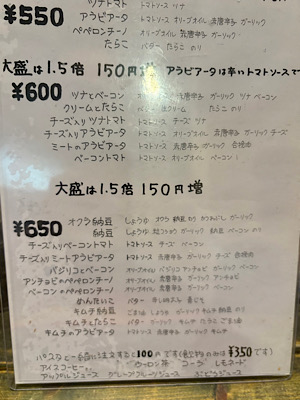 ツナトマト トマトソース ツナ
¥550 アラビアータ トマトソース オリーブオイル 赤唐辛子 ガーリック
ペペロンチーノ オリーブオイル 赤唐辛子 ガーリック
たらこ バター たらこ のり
大盛は1.5倍 150円増 アラビアータは辛いトマトソースで
¥600 ツナとベーコン オリーブオイル 赤唐辛子 ガーリック ツナ ベーコン
クリームとたらこ たらこ のり
チーズ入りツナトマト トマトソース チーズ ツナ
チーズ入りアラビアータ トマトソース オリーブオイル 赤唐辛子 ガーリック チーズ
ミートのアラビアータ トマトソース 赤唐辛子 ガーリック 合挽肉
ベーコントマト トマトソース オリーブオイル ベーコン
大盛は1.5倍 150円増
¥650 オクラ納豆 しょうゆ オクラ 納豆 のり ガーリック
納豆 しょうゆ ガーリック 納豆 ベーコン のり
チーズ入りベーコントマト トマトソース チーズ ベーコン
チーズ入りミートアラビアータ トマトソース 赤唐辛子 ガーリック チーズ 合挽肉
バジリコとベーコン オリーブオイル バジリコ アンチョビ ガーリック ベーコン
アンチョビのペペロンチーノ オリーブオイル 赤唐辛子 ガーリック アンチョビ
ベーコンのペペロンチーノ オリーブオイル 赤唐辛子 ガーリック ベーコン
めんたいこ バター 辛しめんたい 青じそ
キムチ納豆 ごま油 しょうゆ ガーリック キムチ 納豆 のり
キムチとたらこ バター ガーリック キムチ たらこ ごま油
キムチのアラビアータ トマトソース 赤唐辛子 ガーリック キムチ
パスタと一緒に注文すると100円です(単品のみは¥350です)
アイスコーヒー ウーロン茶 コーラ レモネード
アップルジュース グレープフルーツジュース ぶどうジュース